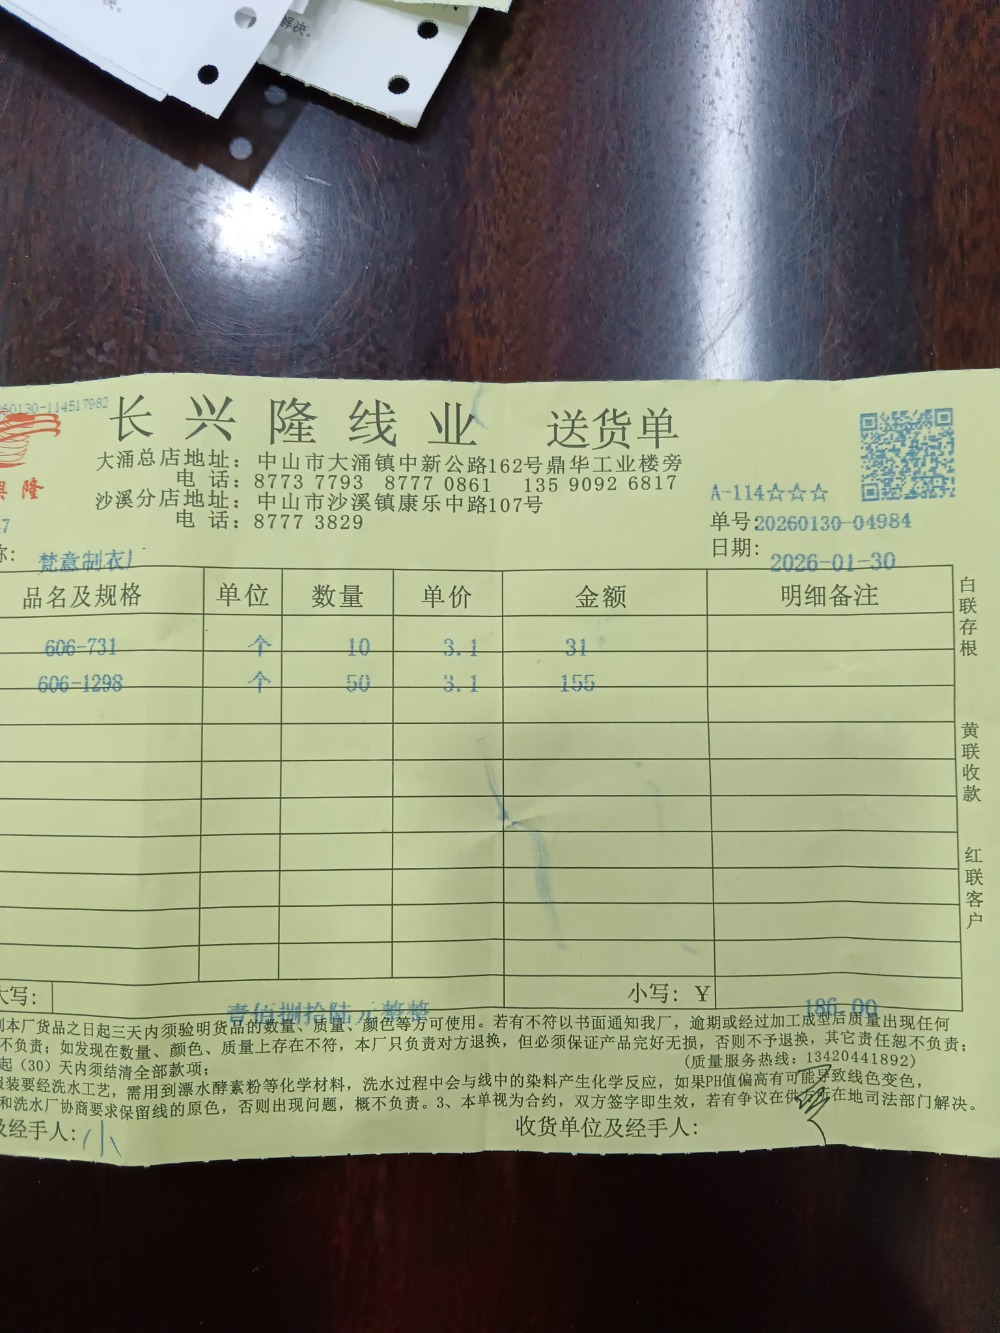 解决。
60130-114517982
长兴隆线业 送货单
大涌总店地址：中山市大涌镇中新公路162号鼎华工业楼旁
电 话：8773 7793 8777 0861 135 9092 6817
沙溪分店地址：中山市沙溪镇康乐中路107号
电 话：8777 3829
隆
A-114☆☆☆
单号：20260130-04984
日期：2026-01-30
称：梵意制衣厂
品名及规格 单位 数量 单价 金额 明细备注
606-731 个 10 3.1 31
606-1298 个 50 3.1 155
白联存根
黄联收款
红联客户
大写：壹佰捌拾陆元整整 小写：￥186.00
到本厂货品之日起三天内须验明货品的数量、质量、颜色等方可使用。若有不符以书面通知我厂，逾期或经过加工成型后质量出现任何
不负责；如发现在数量、颜色、质量上存在不符，本厂只负责对方退换，但必须保证产品完好无损，否则不予退换，其它责任恕不负责；
起（30）天内须结清全部款项； (质量服务热线：13420441892)
服装要经洗水工艺，需用到漂水酵素粉等化学材料，洗水过程中会与线中的染料产生化学反应，如果PH值偏高有可能导致线色变色，
和洗水厂协商要求保留线的原色，否则出现问题，概不负责。3、本单视为合约，双方签字即生效，若有争议在供方所在地司法部门解决。
及经手人：小 收货单位及经手人：